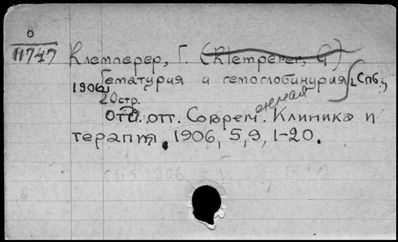 0
11747
Клемперер, Г. (Klemperer, G.)
Гематурия и гемоглобинурия [Спб.,
1906]
20 стр.
Отд. отт. Соврем. Клиника и
терапия, 1906, 5, 9, 1-20.